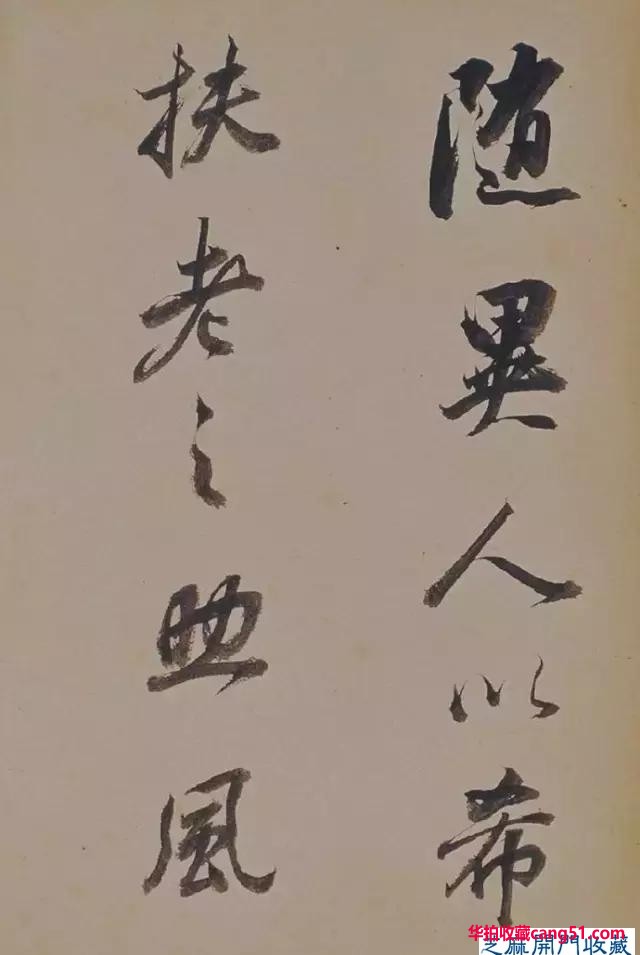 随異人以希
扶老之助風
华拍收藏cang51.com
芝麻開門收藏